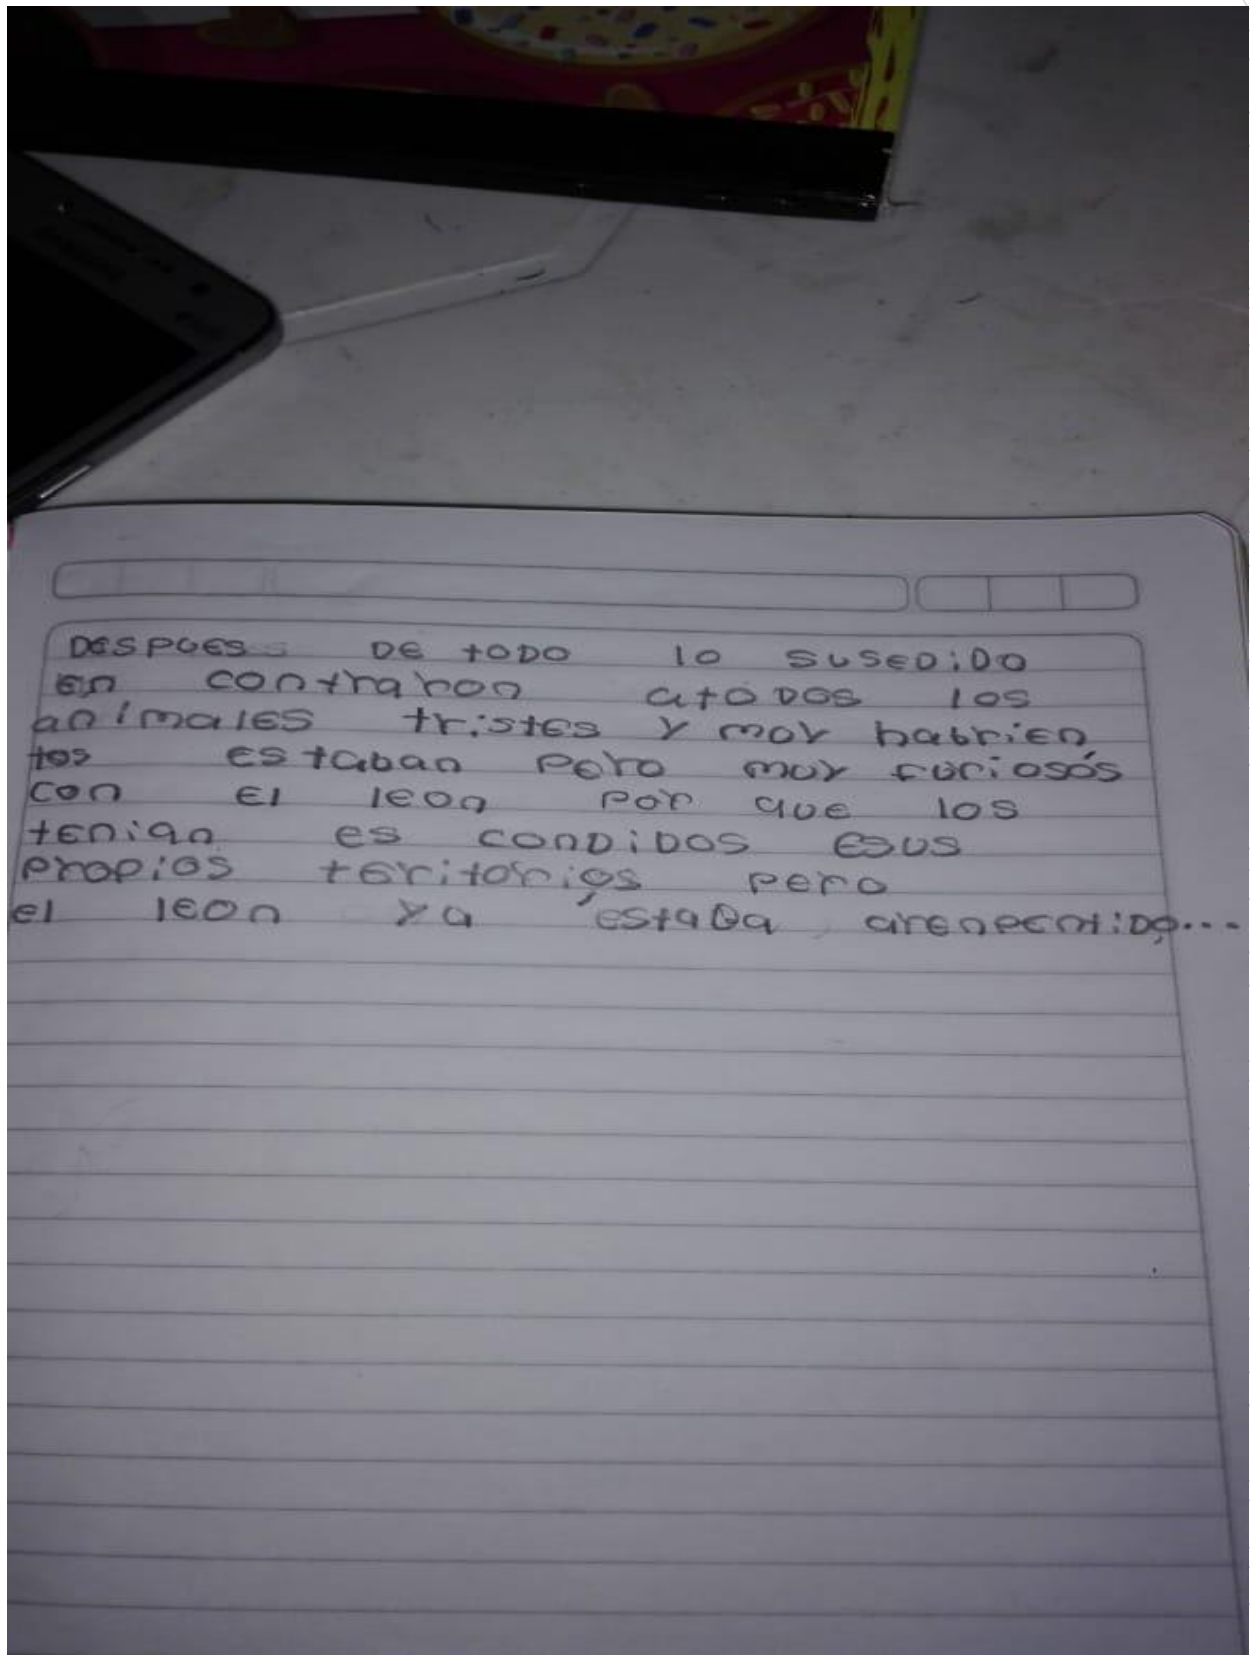 DESPUES DE toDO lo SUSEDiDO
en contraron atoDOS los
animales tristes y muy habrien
tos estaban pero muy furiosos
con El leon por que los
tenian es conDiDOS ESUS
propios teritorios pero
el leon ya estaba arenpentiDo...